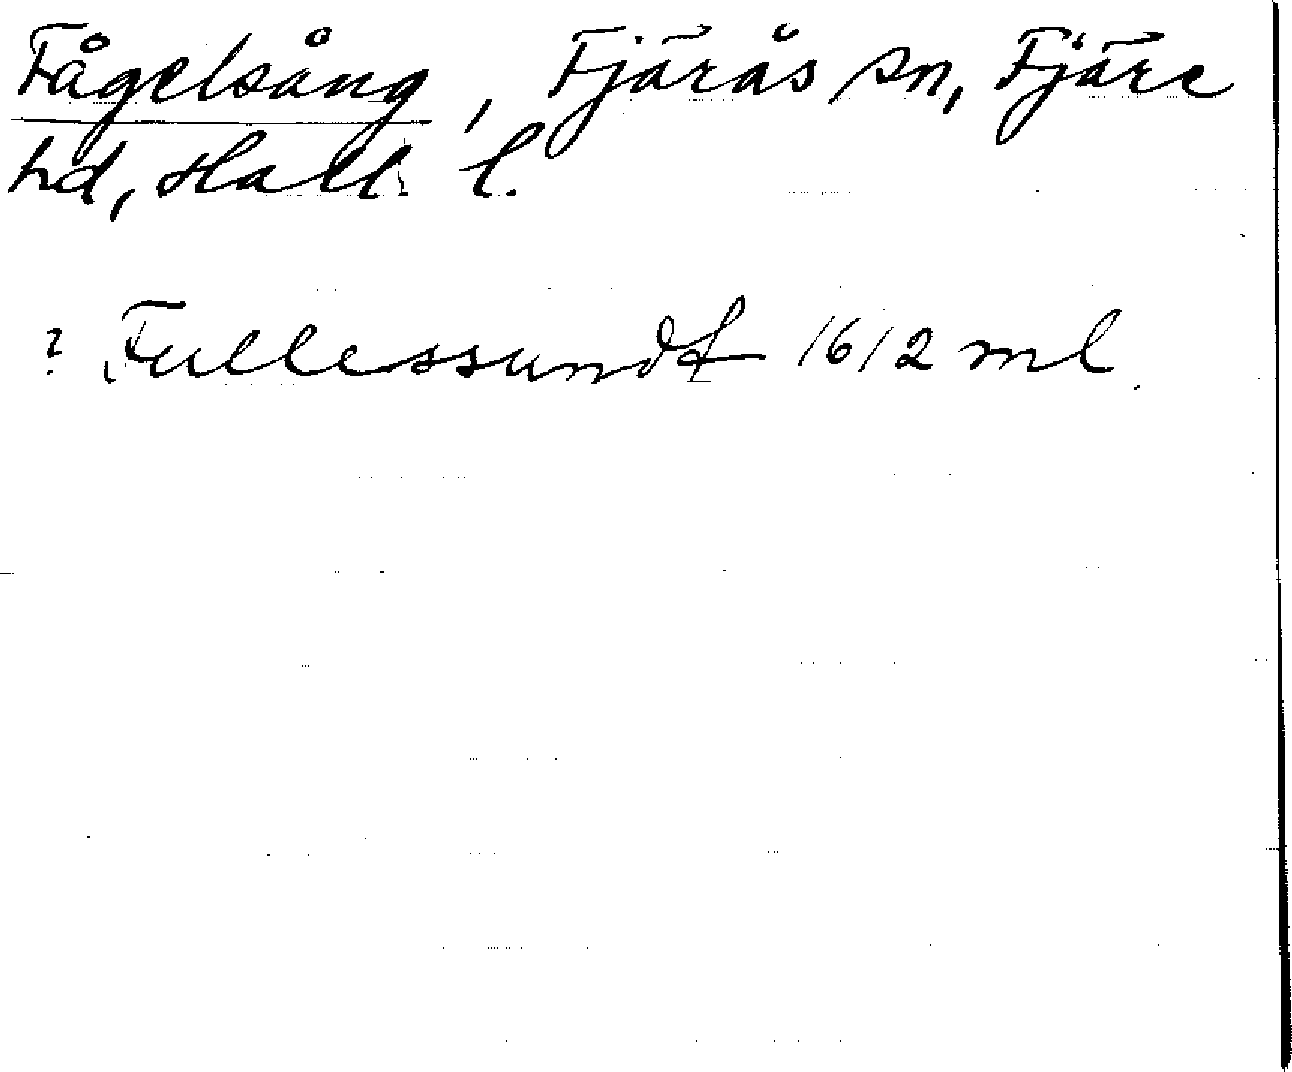 Fågelsång, Fjärås sn, Fjäre
hd, Hall. l.
? Fullessundt 1612 ml